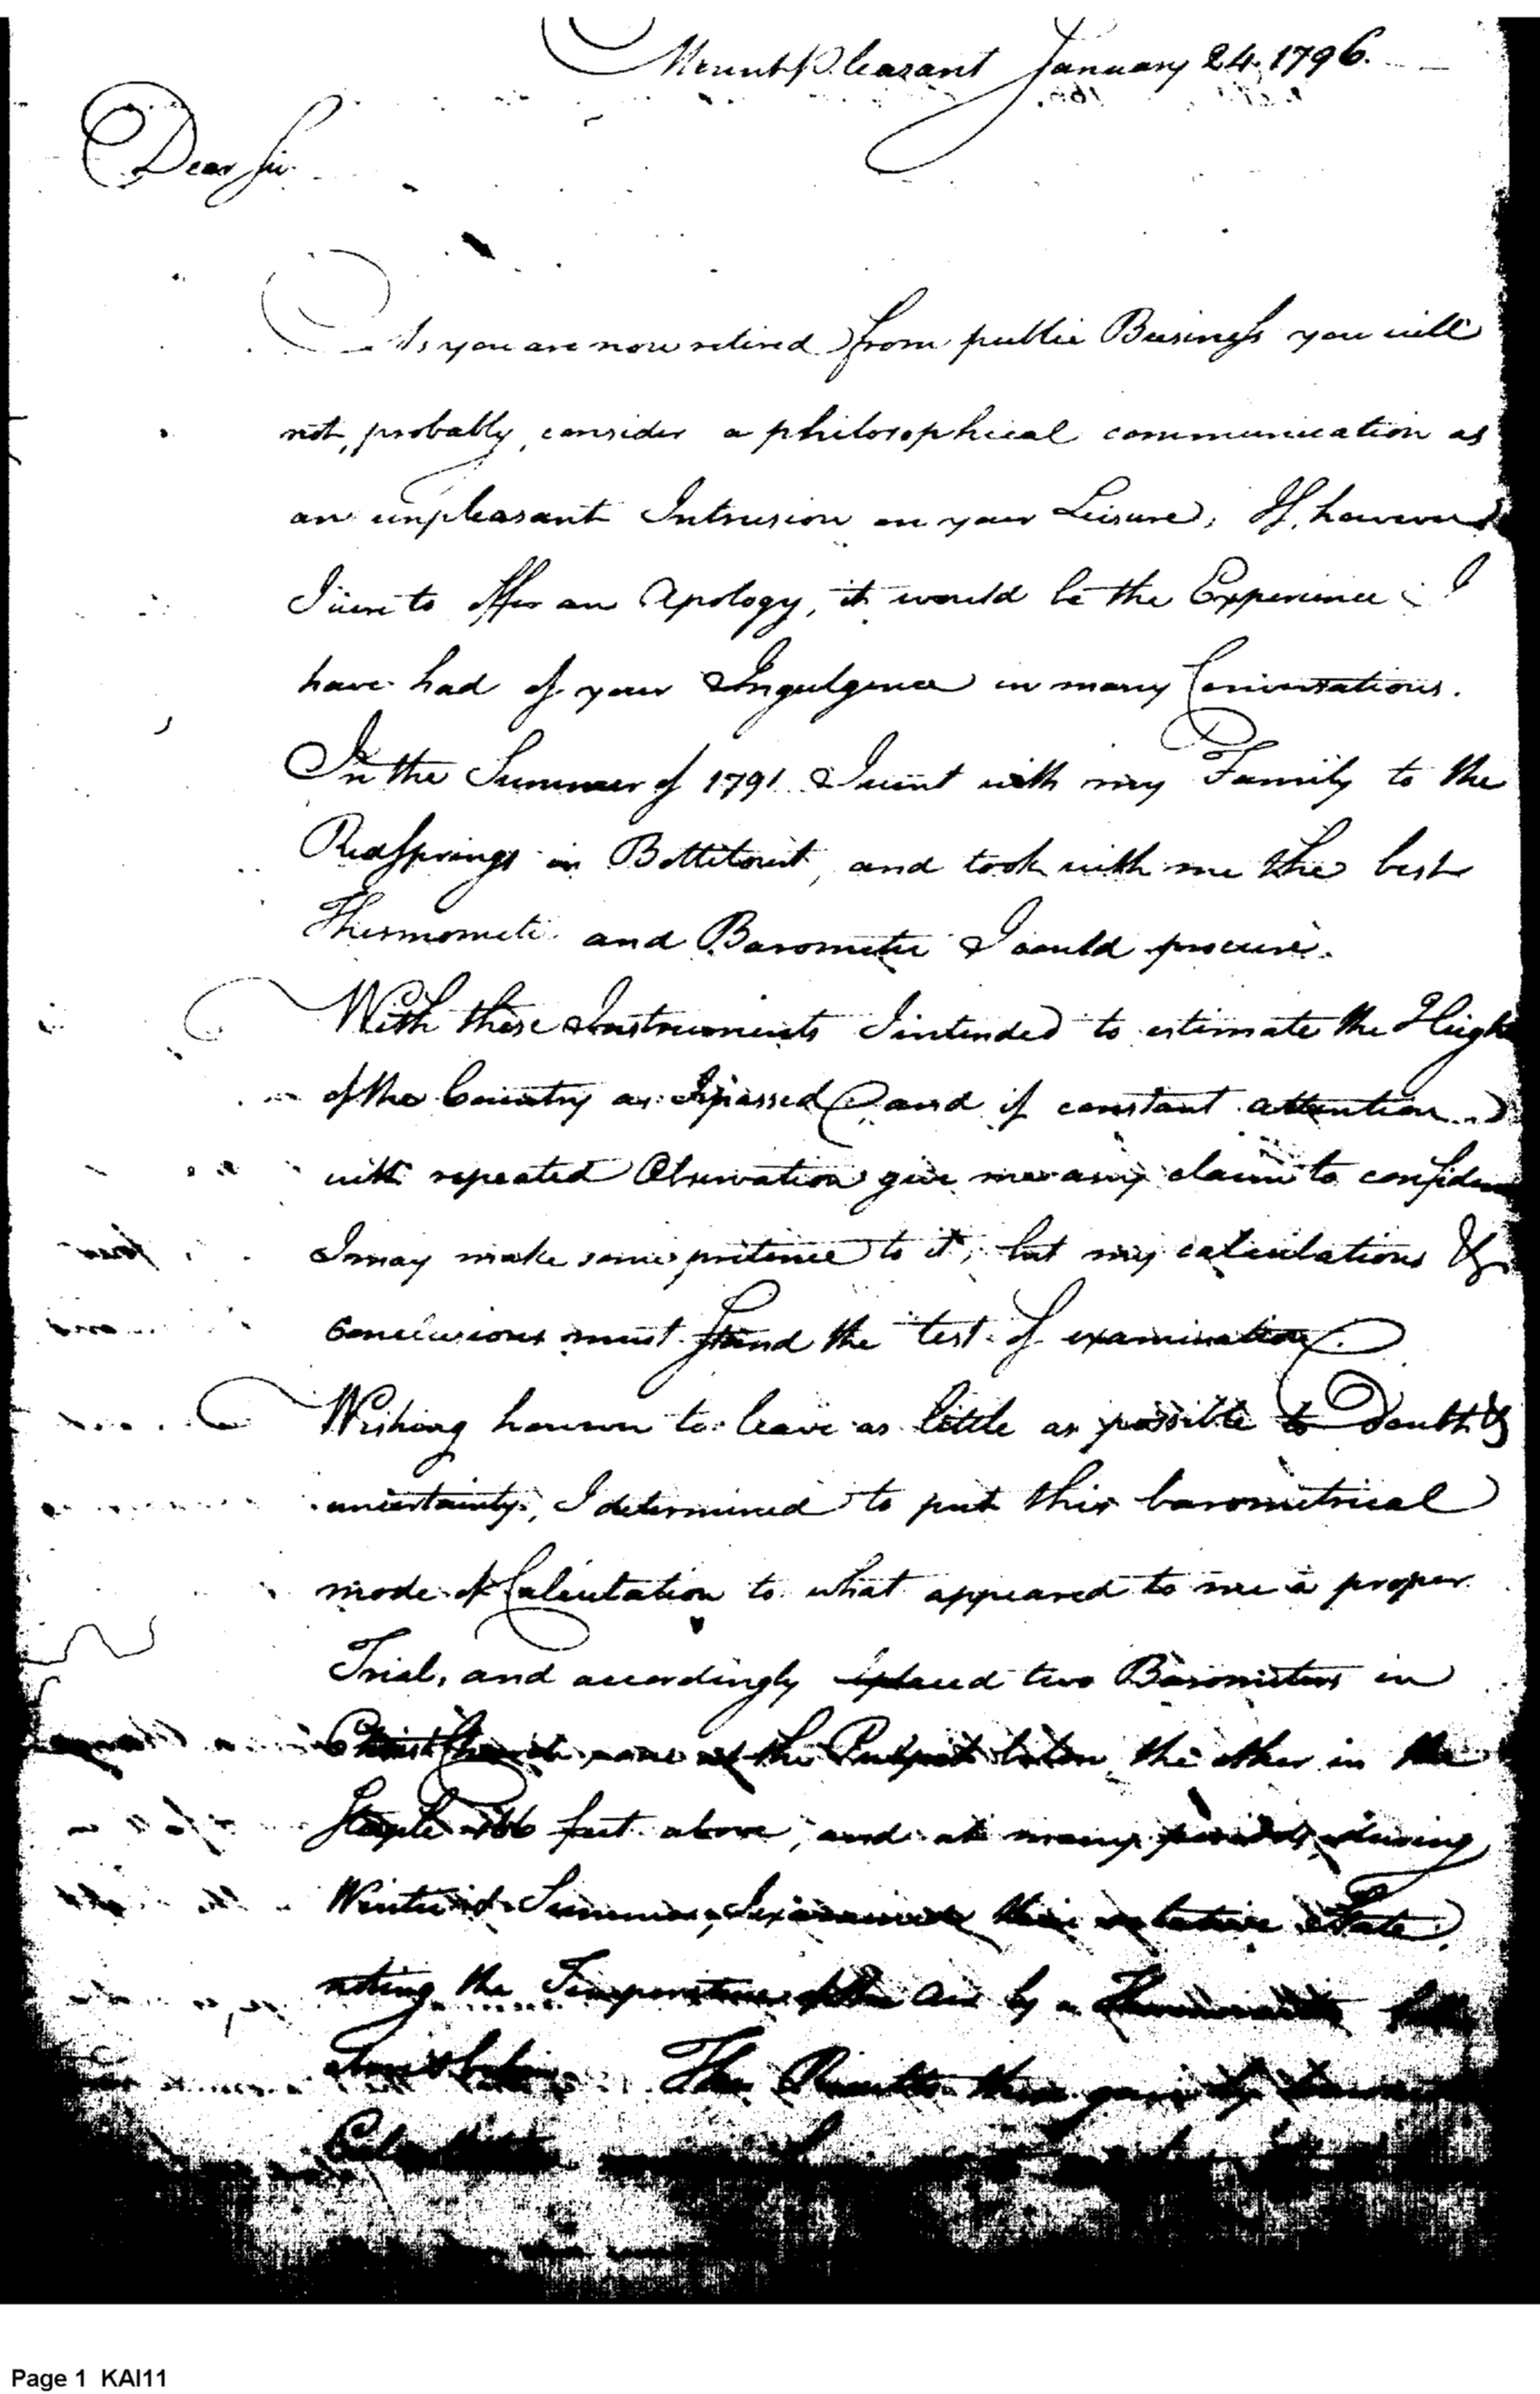 Mount Pleasant January 24. 1796.
Dear Sir
As you are now retired from public Business you will
not, probably, consider a philosophical communication as
an unpleasant Intrusion on your Leisure; If, however
I were to offer an Apology, it would be the Experience I
have had of your Ingulgence in many Conversations.
In the Summer of 1791 I went with my Family to the
Red Springs in Bottitourt, and took with me the best
Thermometer and Barometer I could procure.
With these Instruments I intended to estimate the Height
of the Country as I passed and if constant attention
with repeated Observation give me any claim to confidence
I may make some pretence to it, but my calculations &
conclusions must stand the test of examination.
Wishing however to leave as little as possible to Doubt &
uncertainty, I determined to put this barometrical
mode of Calculation to what appeared to me a proper
Trial, and accordingly placed two Barometers in
Christ Church one at the Pulpit the other in the
Steeple feet above, and at many periods during
Winter Summer, I examined their relative State
noting the Temperature of the Air by a
The Results
Page 1 KAI11